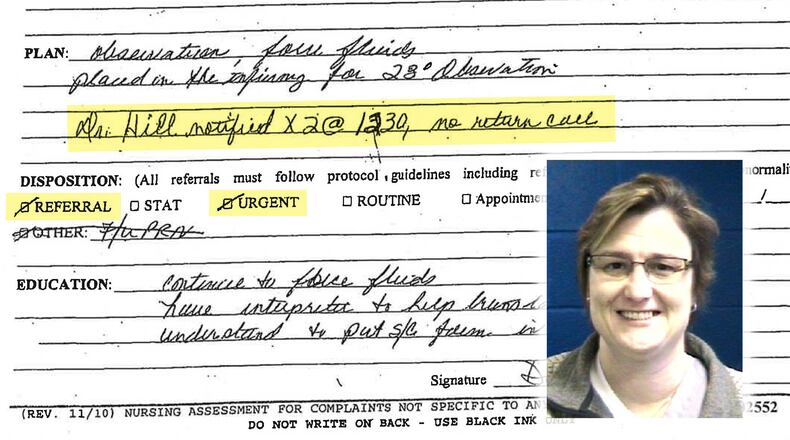 PLAN: Observation, force fluids
placed in the infirmary for 23° Observation
Dr. Hill notified X 2 @ 1230, no return call
DISPOSITION: (All referrals must follow protocol guidelines including normalit
☑ REFERRAL ☐ STAT ☑ URGENT ☐ ROUTINE ☐ Appointme /
☑ OTHER: F/U PRN
EDUCATION: continue to force fluids
have interpreter to help
understand to put s/c form in
Signature
(REV. 11/10) NURSING ASSESSMENT FOR COMPLAINTS NOT SPECIFIC TO AN 2552
DO NOT WRITE ON BACK - USE BLACK INK ONLY